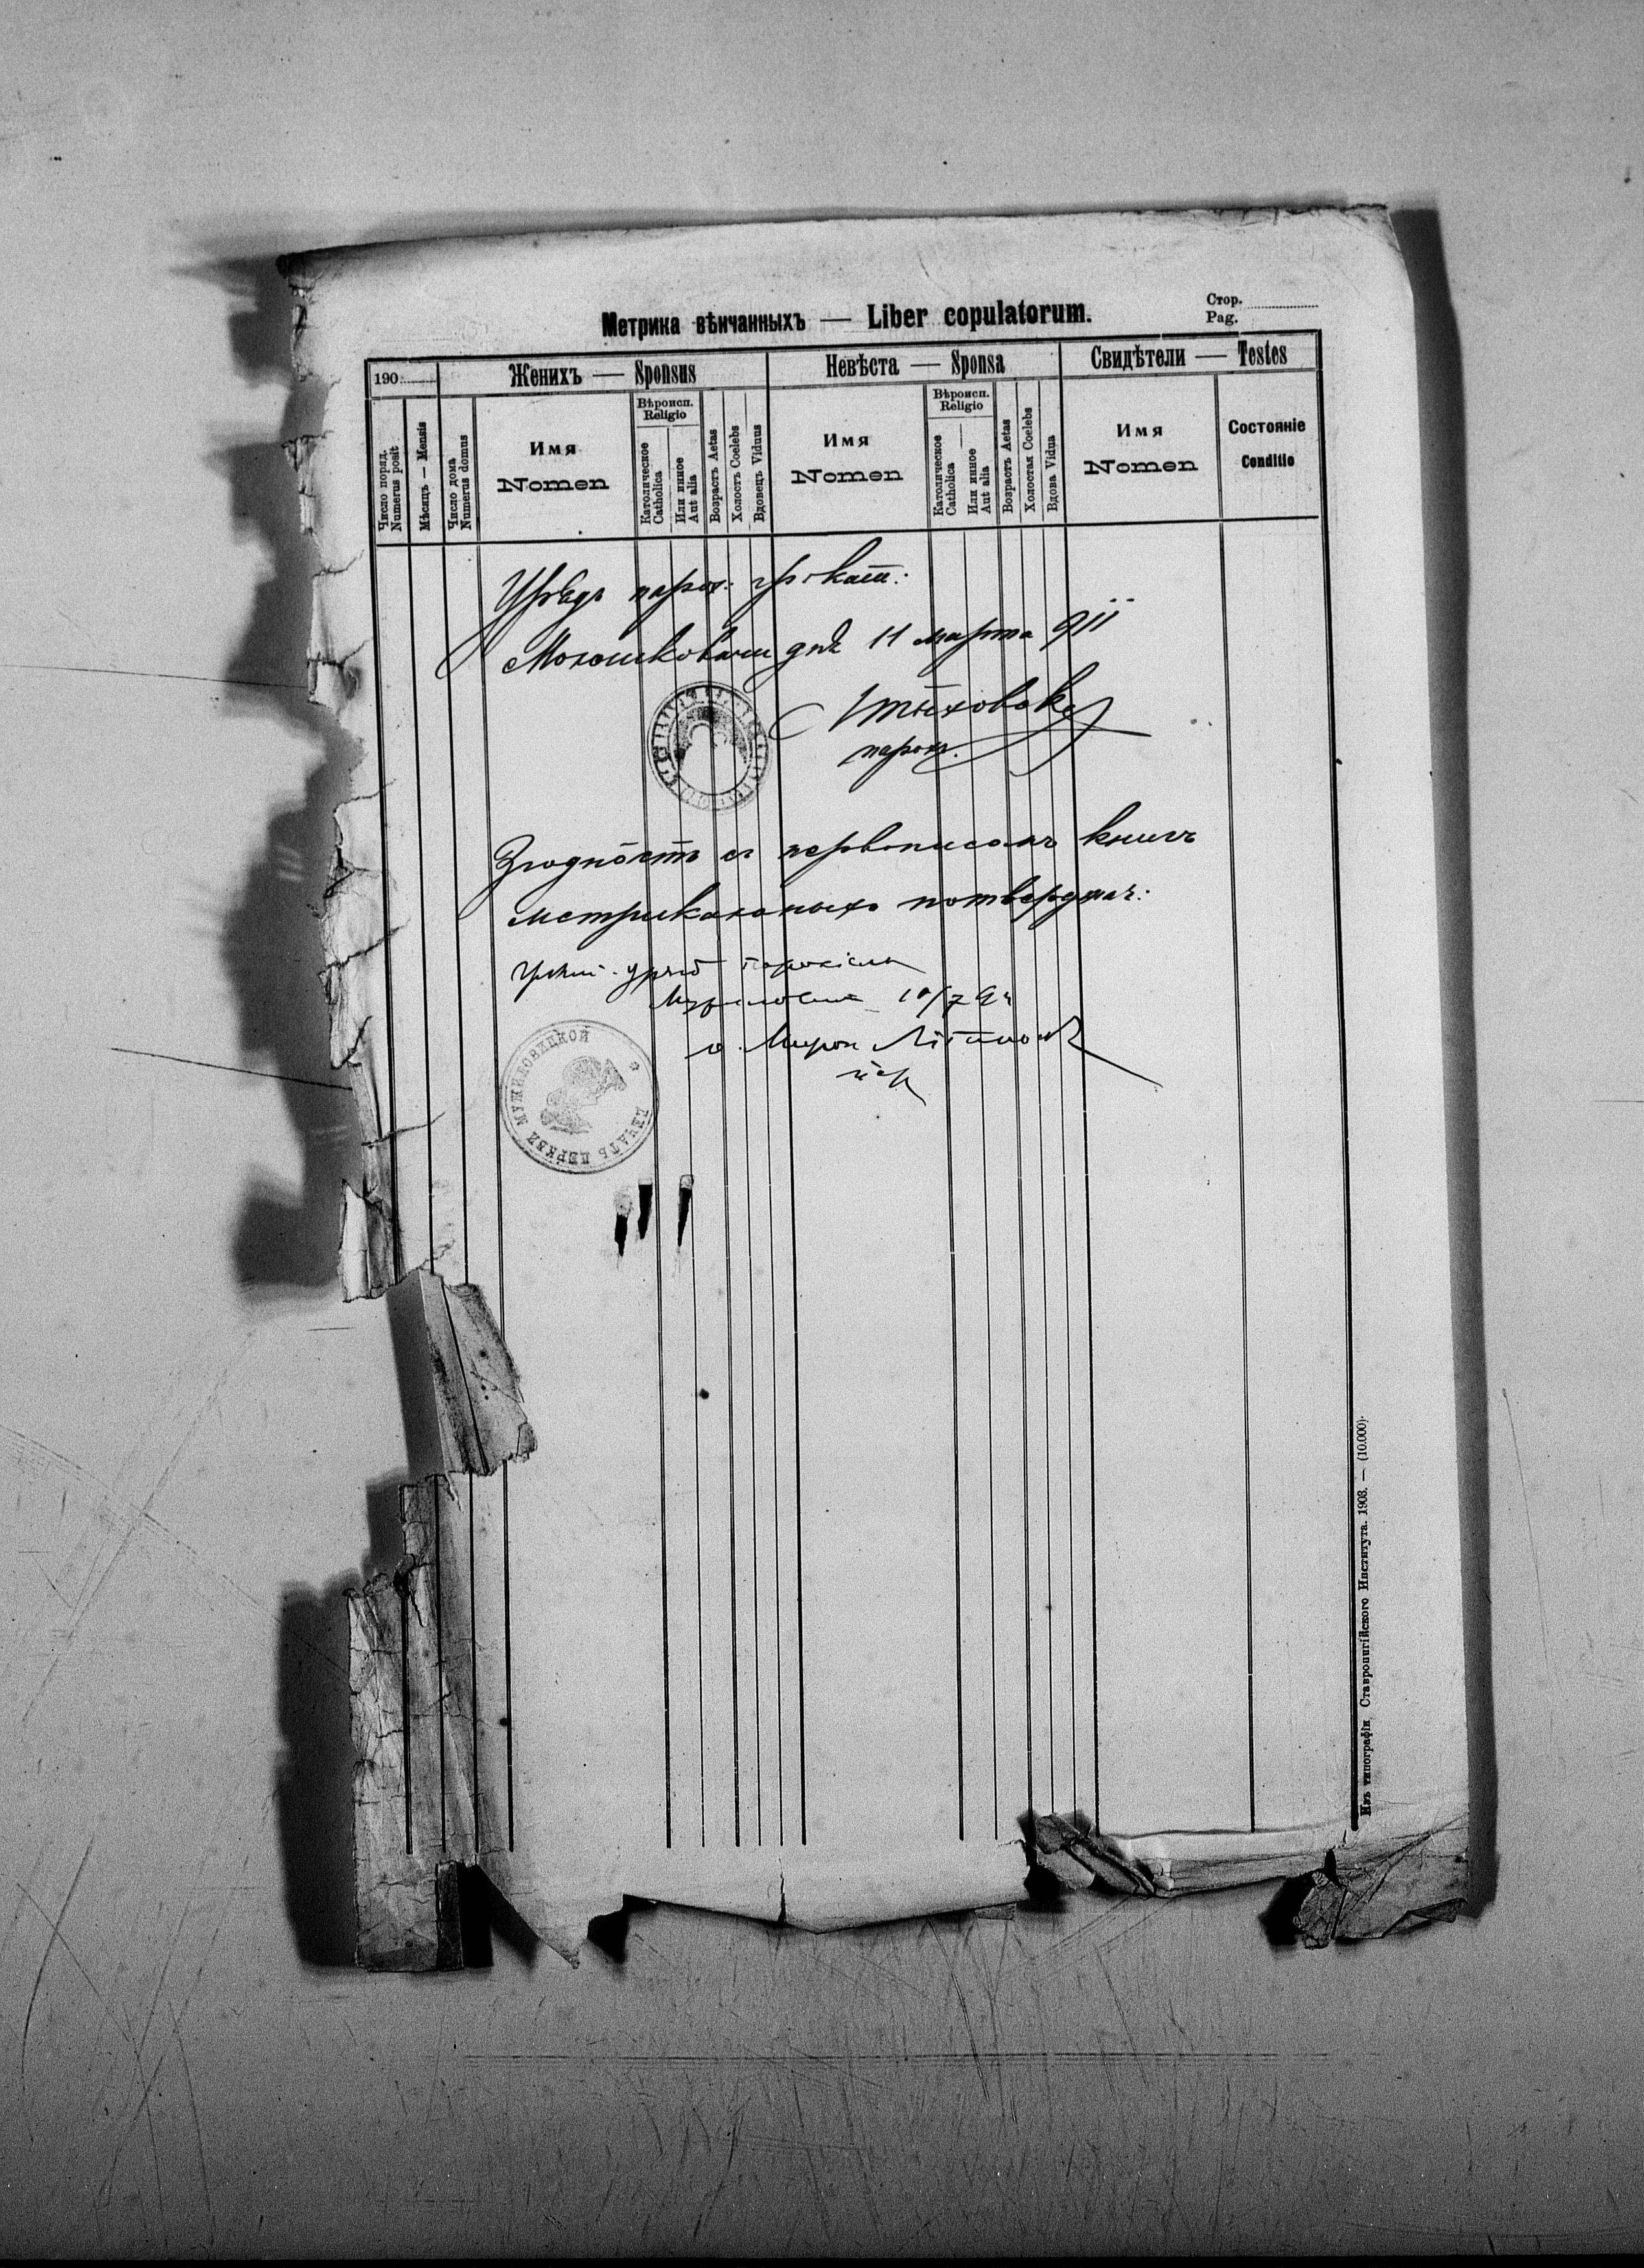 Метрика вѣнчанныхъ — Liber copulatorum.
Стор.
Pag.
190
Женихъ — Sponsus
Невѣста — Sponsa
Свидѣтели — Testes
Число поряд.
Numerus posit
Мѣсяць — Mensis
Число дома
Numerus domus
Имя
Nomen
Вѣроисп.
Religio
Католическое
Catholica
Или инное
Aut alia
Возрастъ Aetas
Холостъ Coelebs
Вдовецъ Viduus
Имя
Nomen
Вѣроисп.
Religio
Католическое
Catholica
Или инное
Aut alia
Возрастъ Aetas
Холостая Coelebs
Вдова Vidua
Имя
Nomen
Состояніе
Conditio
Урядъ парох: гр: кат:
дня 11 марта 911
парох.
Згодность съ первописомъ книгъ
метрикальныхъ потверджає:
уряд
10/7
о. Мирон
ПЕЧАТЬ ЦЕРКВИ МУЖИЛОВЕЦКОЙ *
Изъ типографіи Ставропигійского Института. 1908. — (10.000).